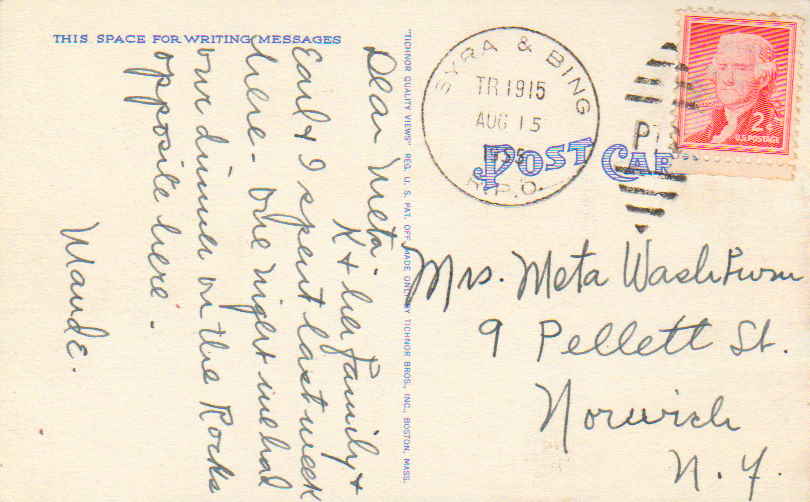 THIS SPACE FOR WRITING MESSAGES
Dear Meta-
K + her family +
Earl + I spent last week
here - One night we had
our dinner on the Rocks
opposite here.
Maude.
"TICHNOR QUALITY VIEWS" REG. U. S. PAT. OFF. MADE ONLY BY TICHNOR BROS., INC., BOSTON, MASS.
SYRA & BING
TR 1915
AUG 15
1955
R.P.O.
POST CAR
2¢
U.S. POSTAGE
Mrs. Meta Washburn
9 Pellett St.
Norwich
N.Y.